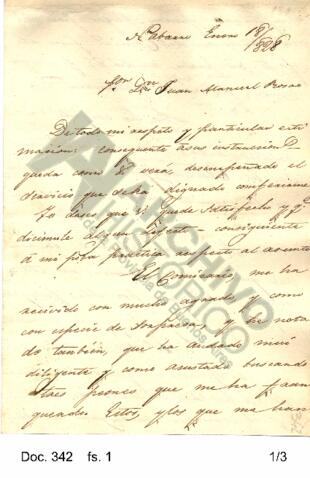 Enero 18/828
Sor Dn Juan Manuel Rosas
De todo mi respeto y particular esti
macion: consequente a sus instrucciones
queda como V verá, desempeñado el
servicio que se ha dignado conferirme
que V quede satisfecho y q
disimule algun defecto consiguiente
á mi poca practica respecto al asunto
El Comisario me ha
recivido con mucho agrado, y como
con especie de sorpresa, y he nota
do tambien, que ha andado muy
diligente y como asustado buscando
tres peones que me ha fran
queado. Estos, y los que me han
ARCHIVO
HISTORICO
de la Provincia de Buenos Aires
Doc. 342 fs. 1 1/3